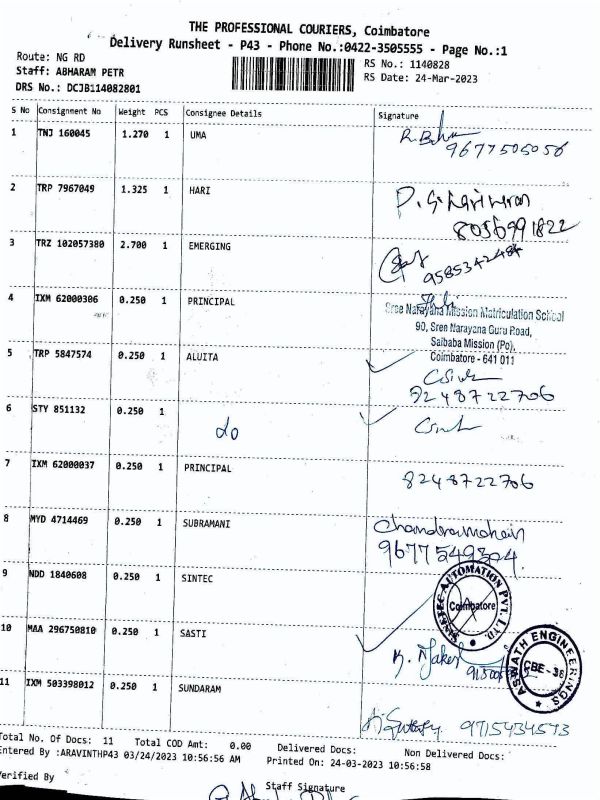 THE PROFESSIONAL COURIERS, Coimbatore
Delivery Runsheet - P43 - Phone No.:0422-3505555 - Page No.:1
Route: NG RD
Staff: ABHARAM PETR
DRS No.: DCJB114082801
RS No.: 1140828
RS Date: 24-Mar-2023
S No Consignment No Weight PCS Consignee Details Signature
1 TNJ 160045 1.270 1 UMA
9677505056
2 TRP 7967049 1.325 1 HARI
8056991822
3 TRZ 102057380 2.700 1 EMERGING
9585342484
4 IXM 62000306 0.250 1 PRINCIPAL
Sree Narayana Mission Matriculation School
90, Sree Narayana Guru Road,
Saibaba Mission (Po),
Coimbatore - 641 011
5 TRP 5847574 0.250 1 ALUITA
8248722706
6 STY 851132 0.250 1
do
7 IXM 62000037 0.250 1 PRINCIPAL
8248722706
8 MYD 4714469 0.250 1 SUBRAMANI
Chandramohan
9677549304
9 NDD 1840608 0.250 1 SINTEC
AUTOMATION PVT. LTD.
Coimbatore
10 MAA 296750810 0.250 1 SASTI
ASWATH ENGINEERINGS
CBE-36
11 IXM 503398012 0.250 1 SUNDARAM
9715434573
Total No. Of Docs: 11 Total COD Amt: 0.00 Delivered Docs: Non Delivered Docs:
Entered By :ARAVINTHP43 03/24/2023 10:56:56 AM Printed On: 24-03-2023 10:56:58
Verified By
Staff Signature